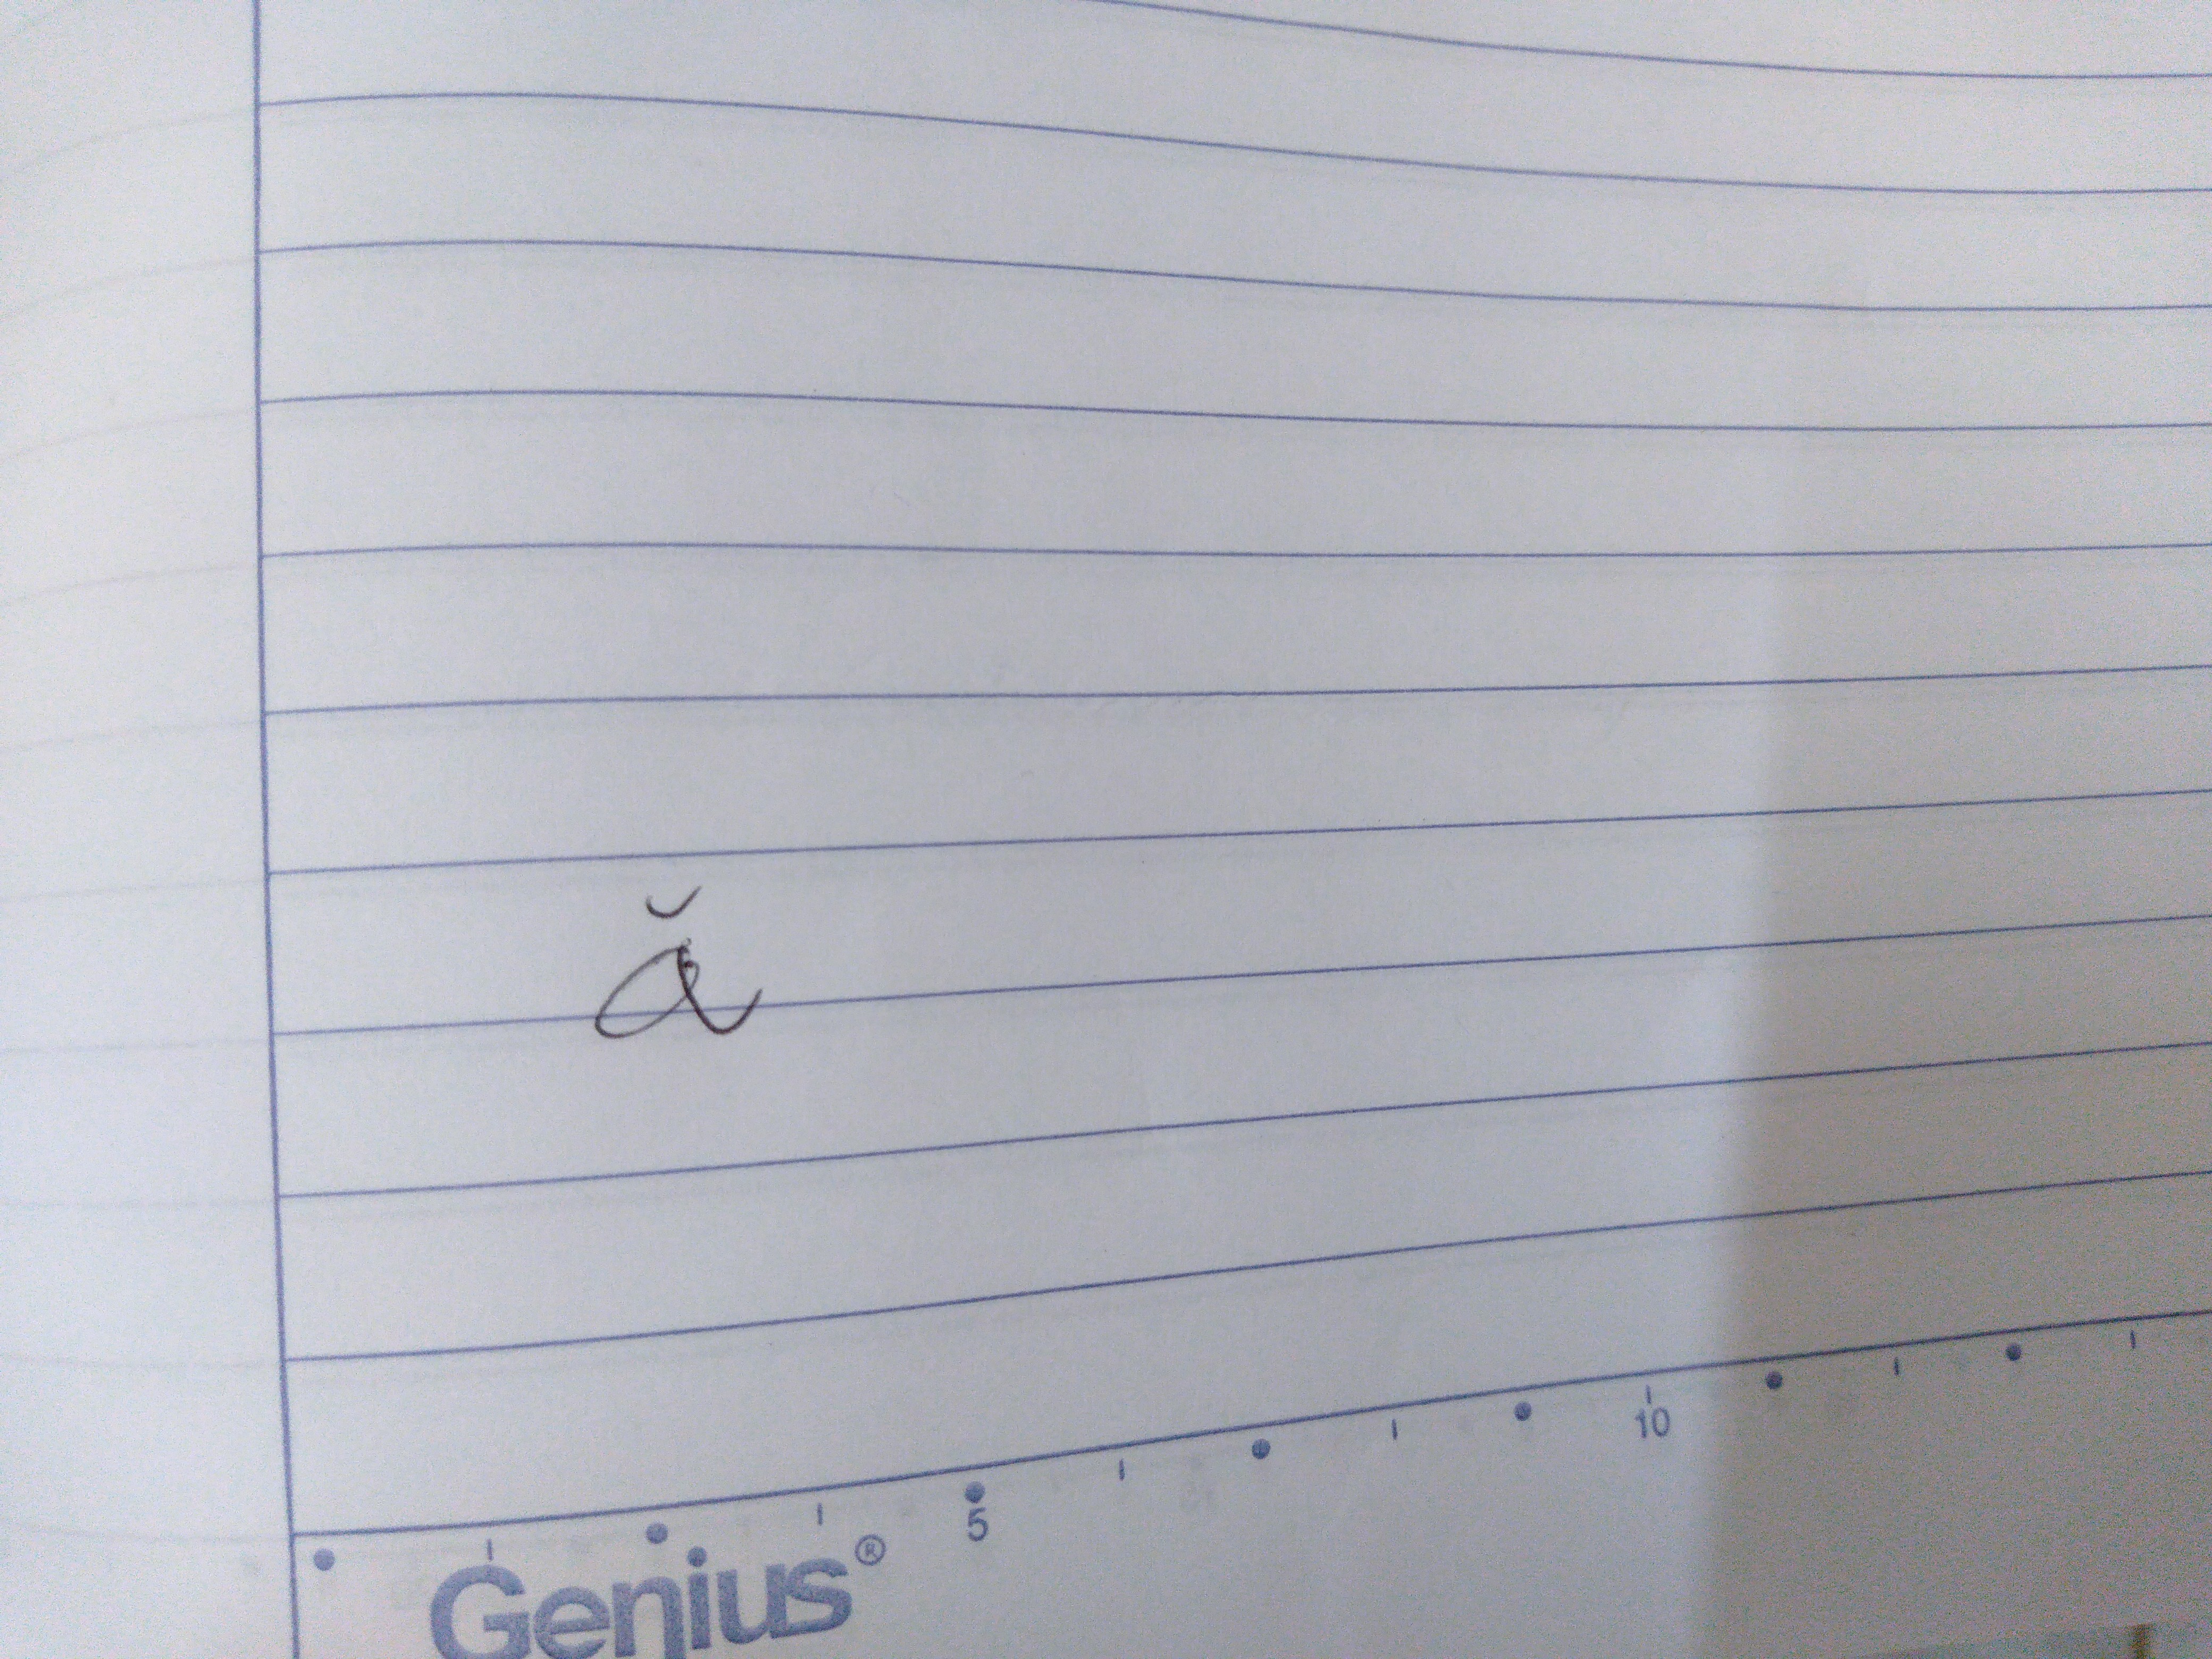 ă
5
10
Genius®